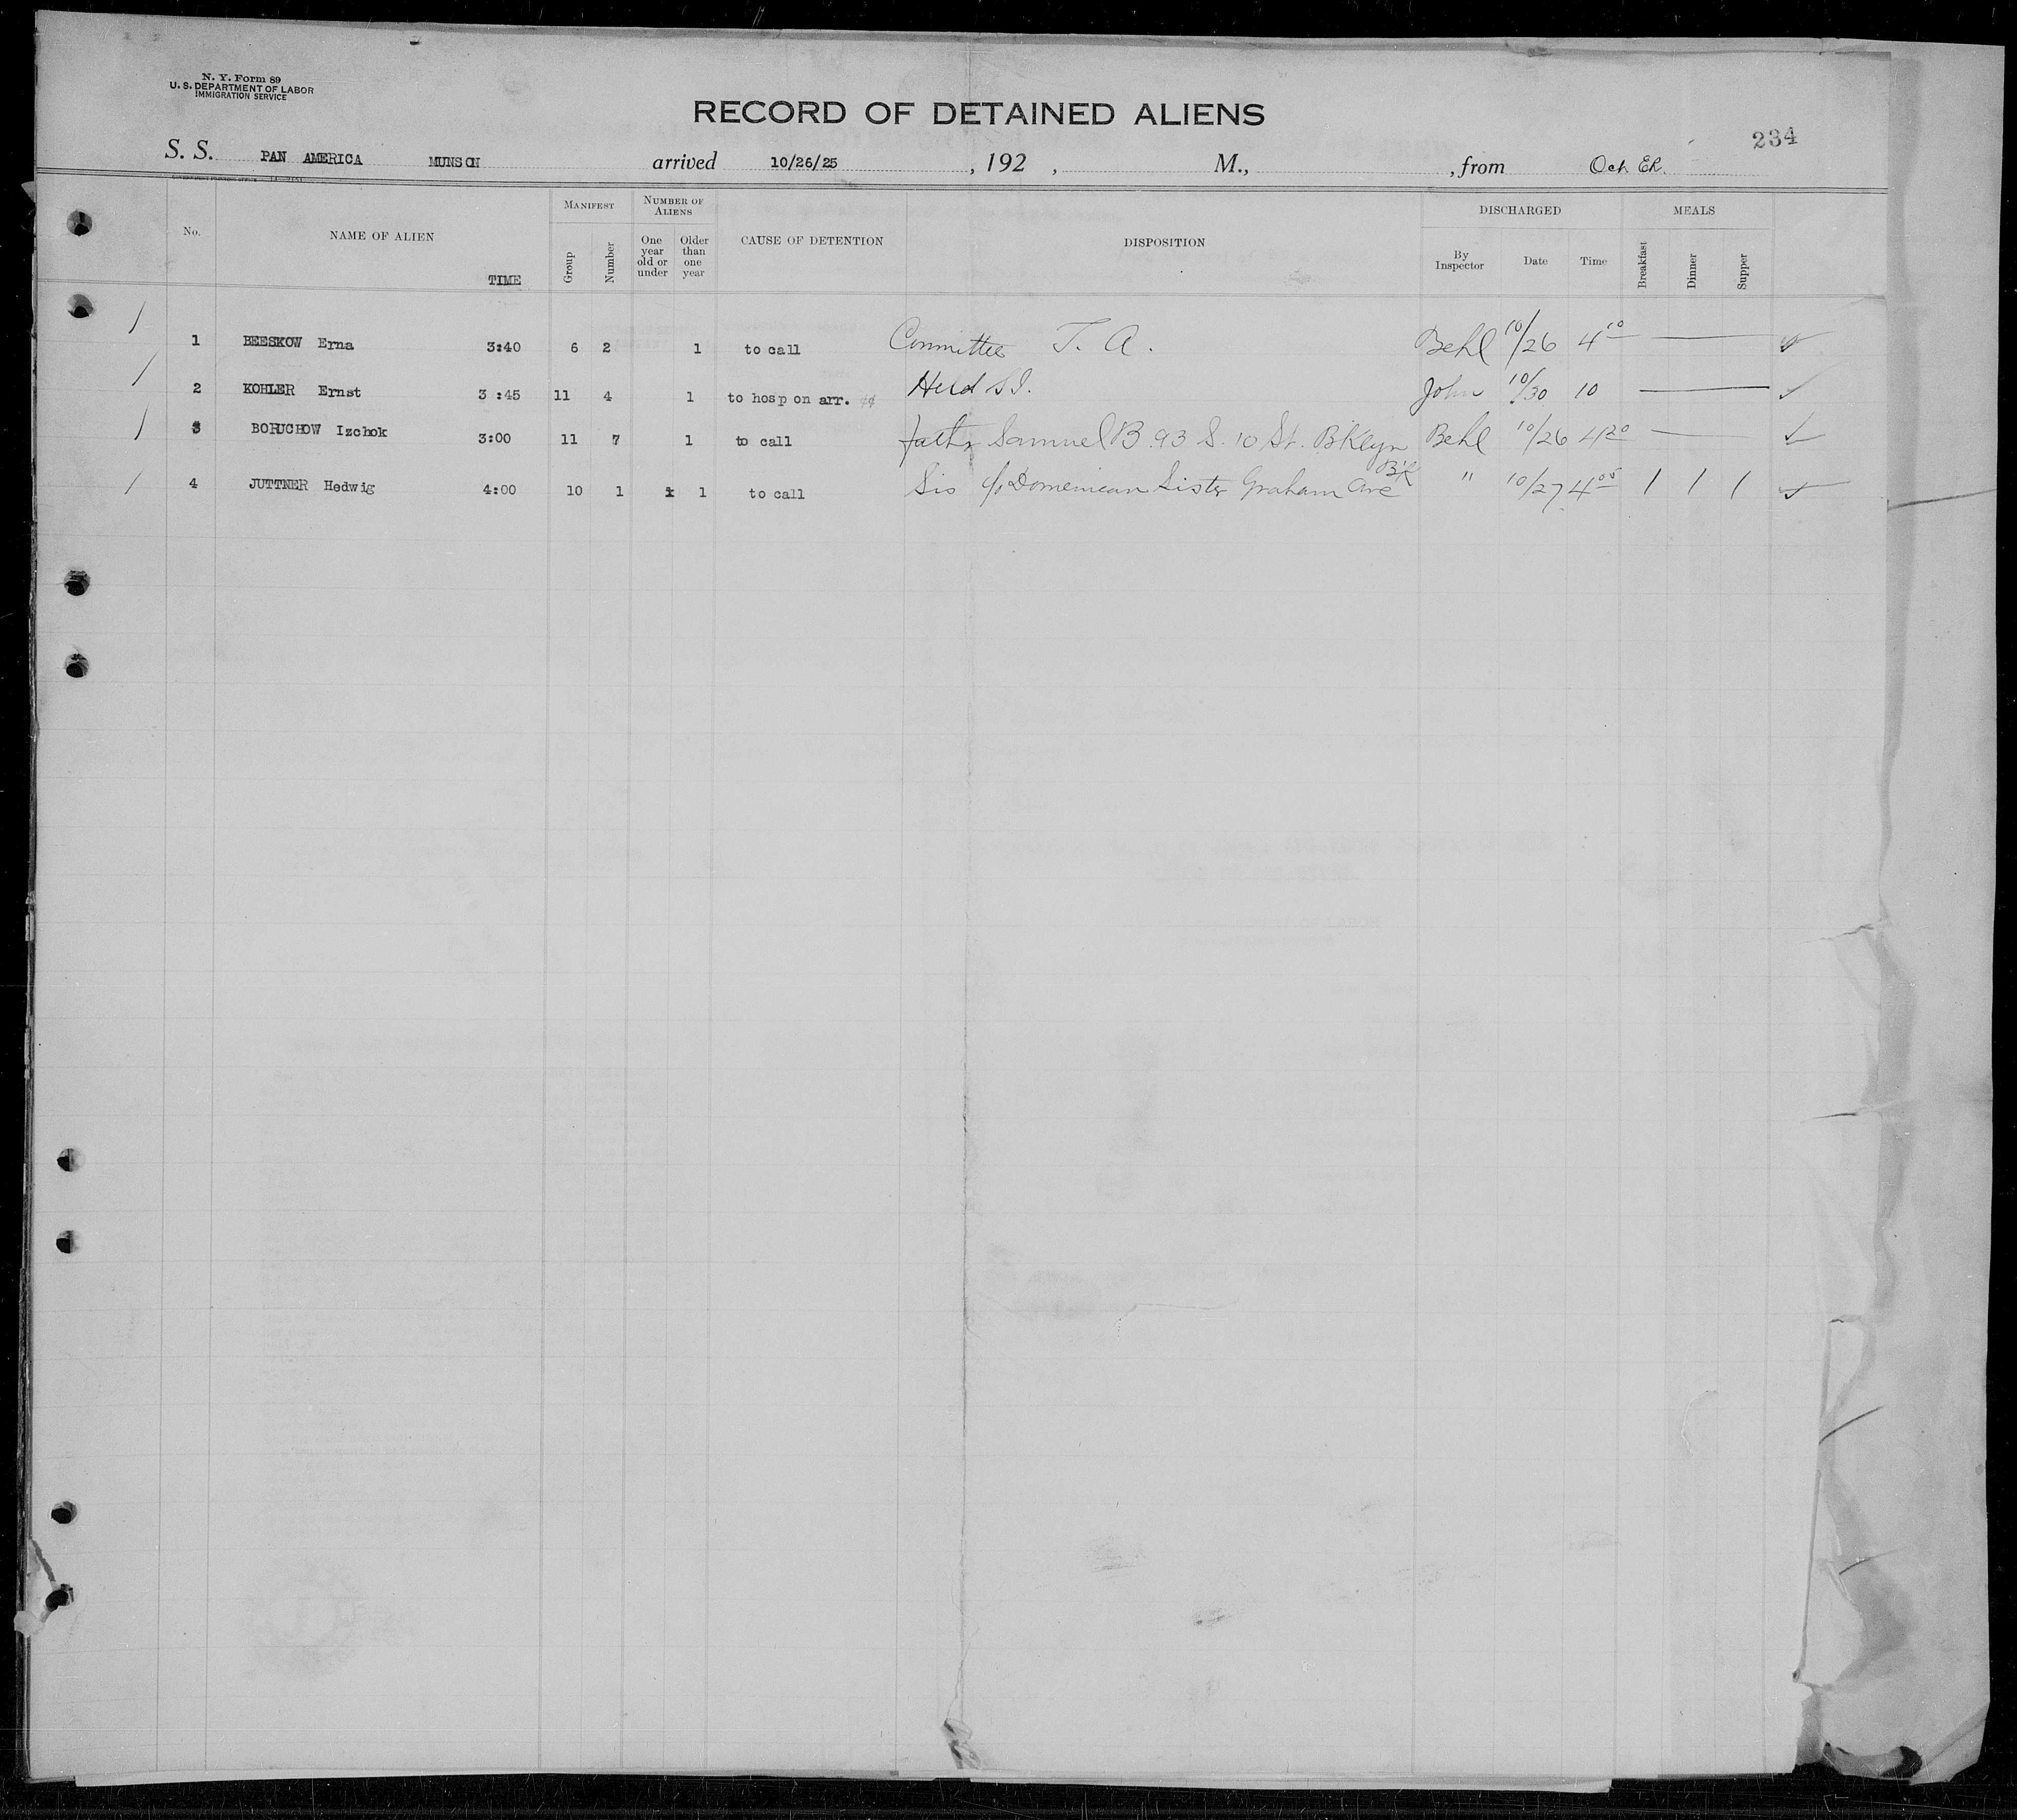 N. Y. Form 89
U. S. DEPARTMENT OF LABOR
IMMIGRATION SERVICE
RECORD OF DETAINED ALIENS
234
S. S. PAN AMERICA MUNSON arrived 10/26/25, 192 , M., , from
MANIFEST NUMBER OF ALIENS DISCHARGED MEALS
No. NAME OF ALIEN TIME Group Number One year old or under Older than one year CAUSE OF DETENTION DISPOSITION By Inspector Date Time Breakfast Dinner Supper
1 BEESKOW Erna 3:40 6 2 1 to call Committee T. A. Behl 10/26 4 10
2 KOHLER Ernst 3:45 11 4 1 to hosp on arr. Held S I. John 10/30 10
3 BORUCHOW Izchok 3:00 11 7 1 to call fathr Samuel B. 93 S. 10 St. Bklyn Behl 10/26 4 20
4 JUTTNER Hedwig 4:00 10 1 1 to call Sis c/o Domenican Sister Graham Ave Bk " 10/27 4 05 1 1 1